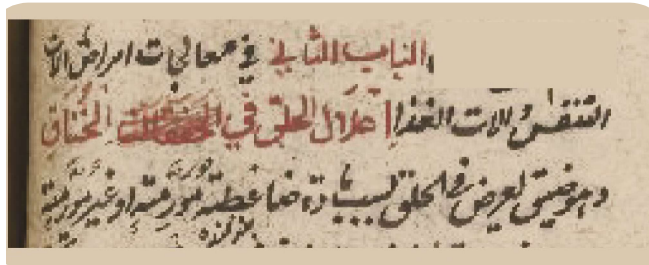 الباب الثاني في معالجات امراض الات
التنفس والات الغذا اعلال الحلق في الخناق
وهو ضيق يعرض في الحلق لسبب مادة ضاغطة مورمة او غير مورمة